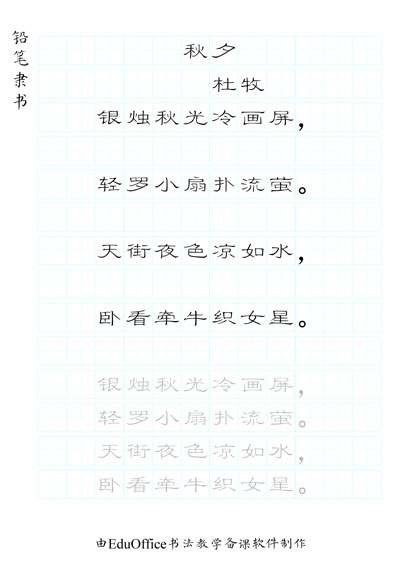 铅笔隶书
秋夕
杜牧
银烛秋光冷画屏，
轻罗小扇扑流萤。
天街夜色凉如水，
卧看牵牛织女星。
银烛秋光冷画屏，
轻罗小扇扑流萤。
天街夜色凉如水，
卧看牵牛织女星。
由EduOffice书法教学备课软件制作